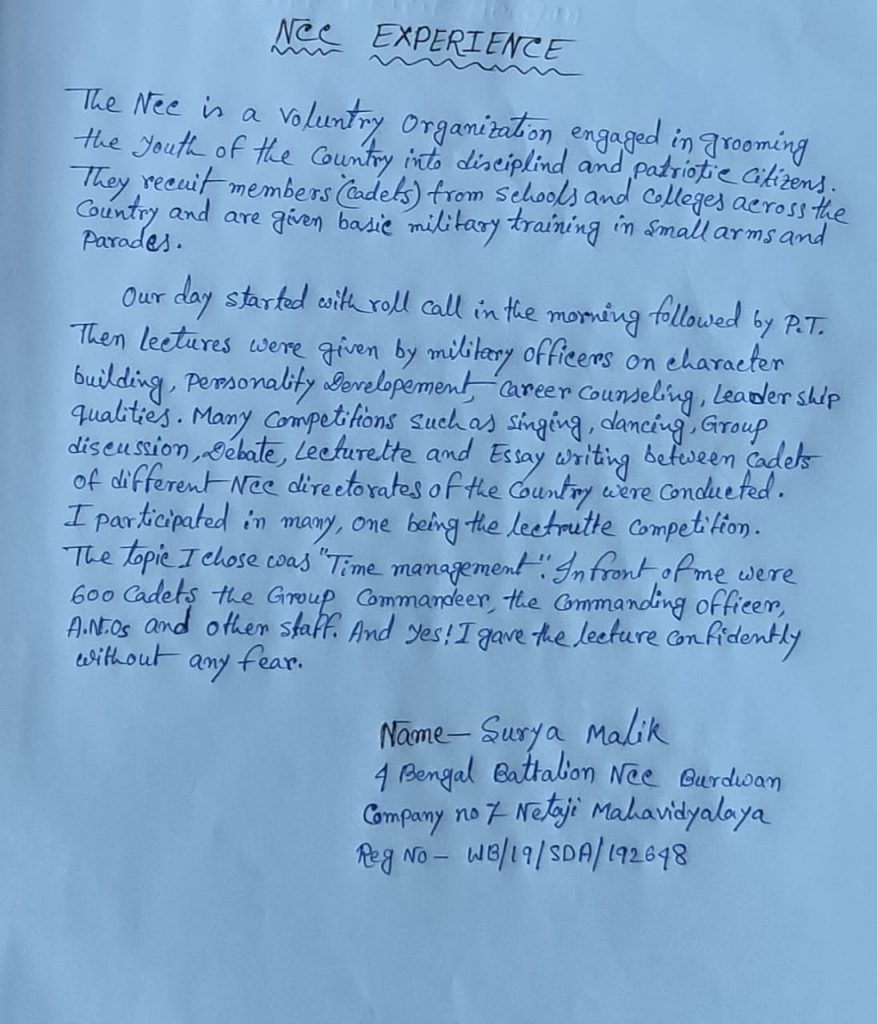 NCC EXPERIENCE
The Ncc is a voluntry Organization engaged in grooming
the youth of the Country into disciplind and patriotic Citizens.
They recuit members (cadets) from schools and colleges across the
Country and are given basic military training in small arms and
Parades.
Our day started with roll call in the morning followed by P.T.
Then lectures were given by military officers on character
building, personality Developement, career counseling, Leader ship
qualities. Many Competitions such as singing, dancing, Group
discussion, Debate, Lecturette and Essay writing between cadets
of different Ncc directorates of the Country were conducted.
I participated in many, one being the lectroutte competition.
The topic I chose was "Time management". In front of me were
600 Cadets the Group Commandeer, the Commanding officer,
A.N.Os and other staff. And yes! I gave the lecture confidently
without any fear.
Name- Surya Malik
4 Bengal Battalion Ncc Burdwan
Company no 7 Netaji Mahavidyalaya
Reg No - WB/19/SDA/192648